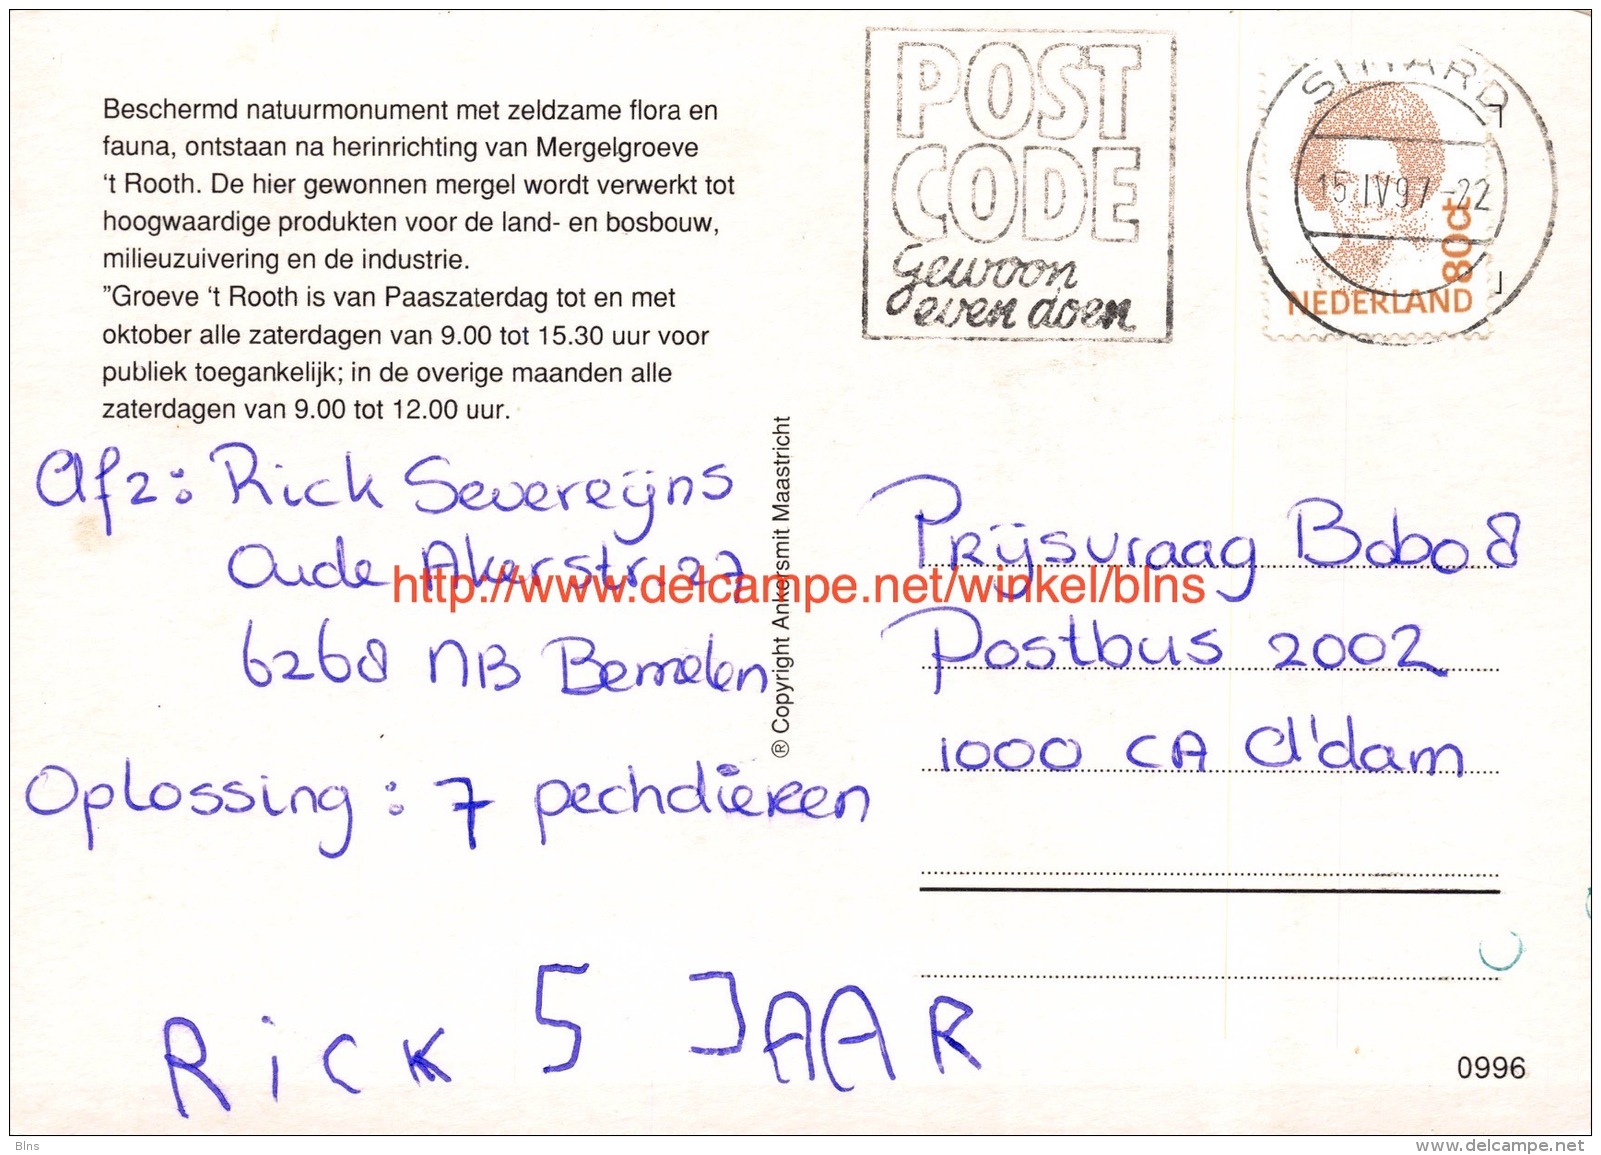 Beschermd natuurmonument met zeldzame flora en
fauna, ontstaan na herinrichting van Mergelgroeve
‘t Rooth. De hier gewonnen mergel wordt verwerkt tot
hoogwaardige produkten voor de land- en bosbouw,
milieuzuivering en de industrie.
”Groeve ‘t Rooth is van Paaszaterdag tot en met
oktober alle zaterdagen van 9.00 tot 15.30 uur voor
publiek toegankelijk; in de overige maanden alle
zaterdagen van 9.00 tot 12.00 uur.
Afz: Rick Severeijns
Oude Akerstr. 27
6268 NB Bemelen
Oplossing: 7 pechdieren
RicK 5 JAAR
® Copyright Ankersmit Maastricht
POST
CODE
gewoon
even doen
SITTARD
15 IV 97-22
80ct
NEDERLAND
Prijsvraag Bobo 8
Postbus 2002
1000 CA A'dam
http://www.delcampe.net/winkel/blns
0996
Blns
www.delcampe.net